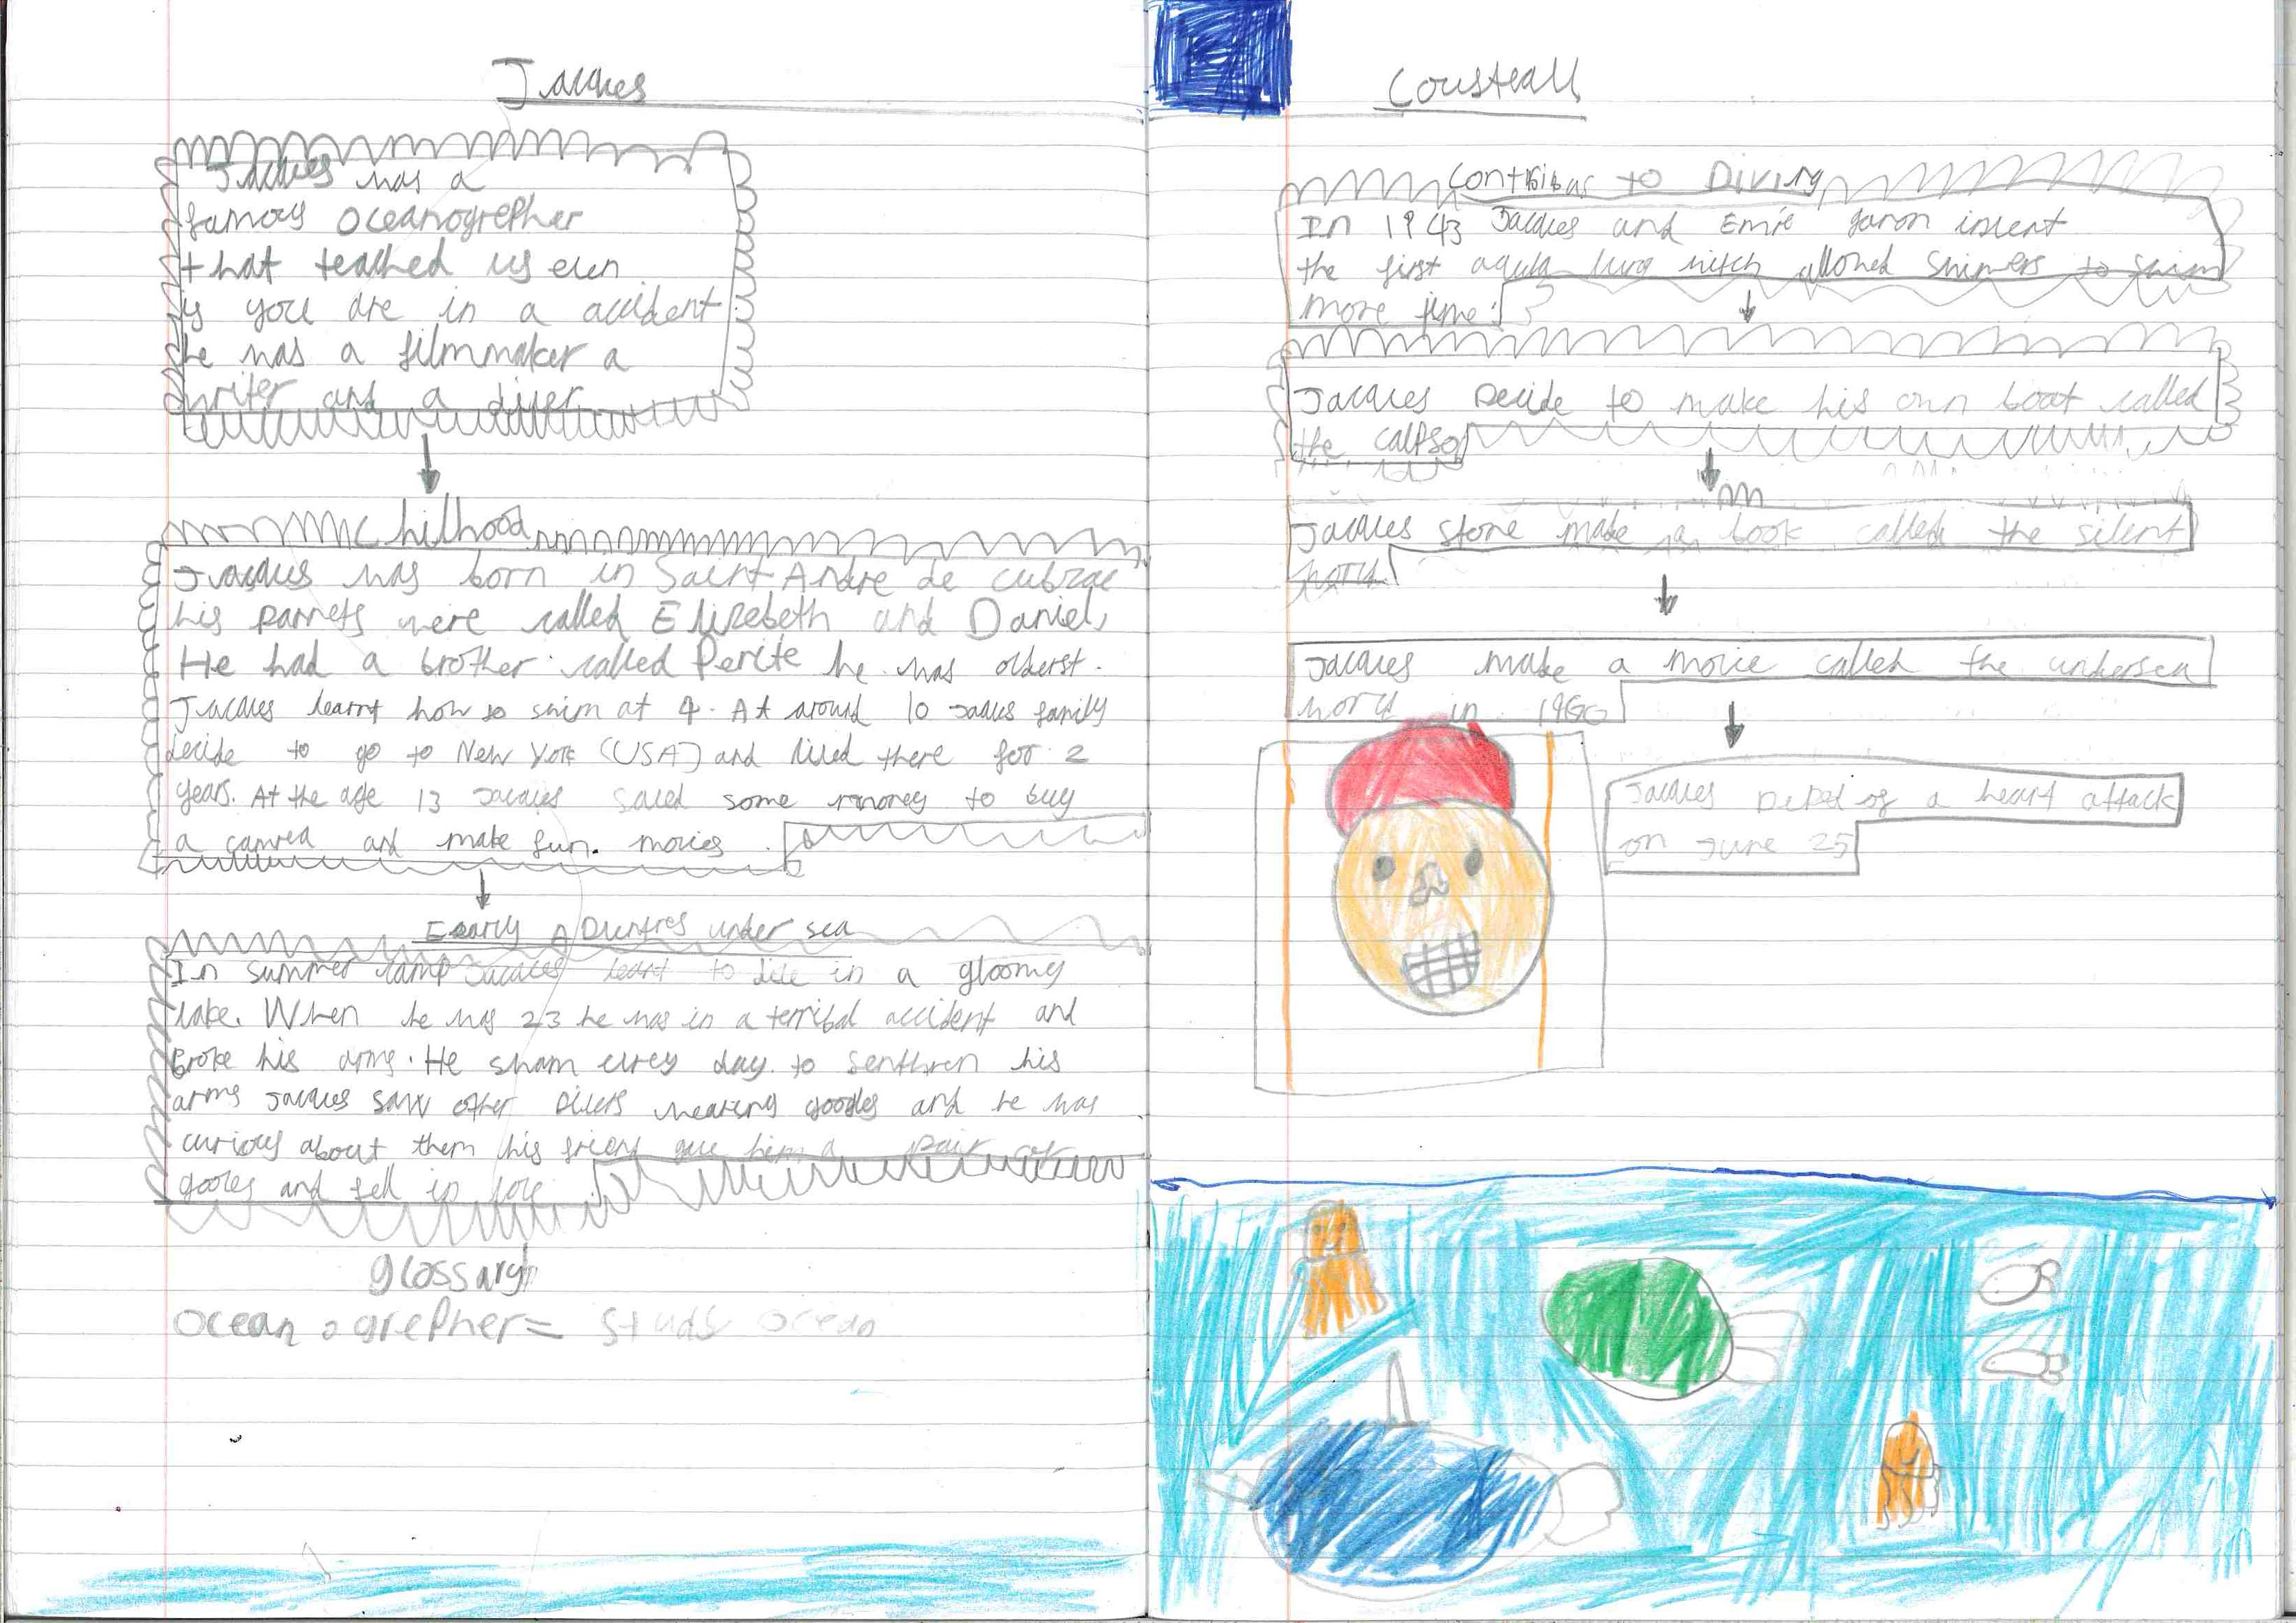 Jacques
Jacques was a
famous oceanogrepher
that teached us even
if you are in a accident
he was a filmmaker a
writer and a diver
Chilhood
Jacques was born in Saint-Andre de cubzac
his parnets were called Elizebeth and Daniel,
He had a brother called Perite he was olderst.
Jacques learnt how to swim at 4. At around 10 Jaques family
decide to go to New York (USA) and lived there for 2
years. At the age 13 Jacques saved some money to buy
a camrea and make fun. movies.
Eearly ADventres under sea
In summer camp Jacques leart to dive in a gloomy
lake. When he was 23 he was in a terribal accident and
Broke his arms. He swam evrey day. to senthren his
arms Jacques saw other Divers wearing googles and he was
curious about them his friend gave him a pair of
gooles and fell in love
glossary
oceanogrepher= study ocean
Cousteau
Contribus to Diving
In 1943 Jacques and Emie garon invent
the first aqula lung witch allowed swimers to swim
more time.
Jacques Decide to make his own boat called
the calpso
Jacques make a book called the silent
world
Jacques make a movie called the undersea
world in 1966
Jacques DeDed of a heart attack
on June 25